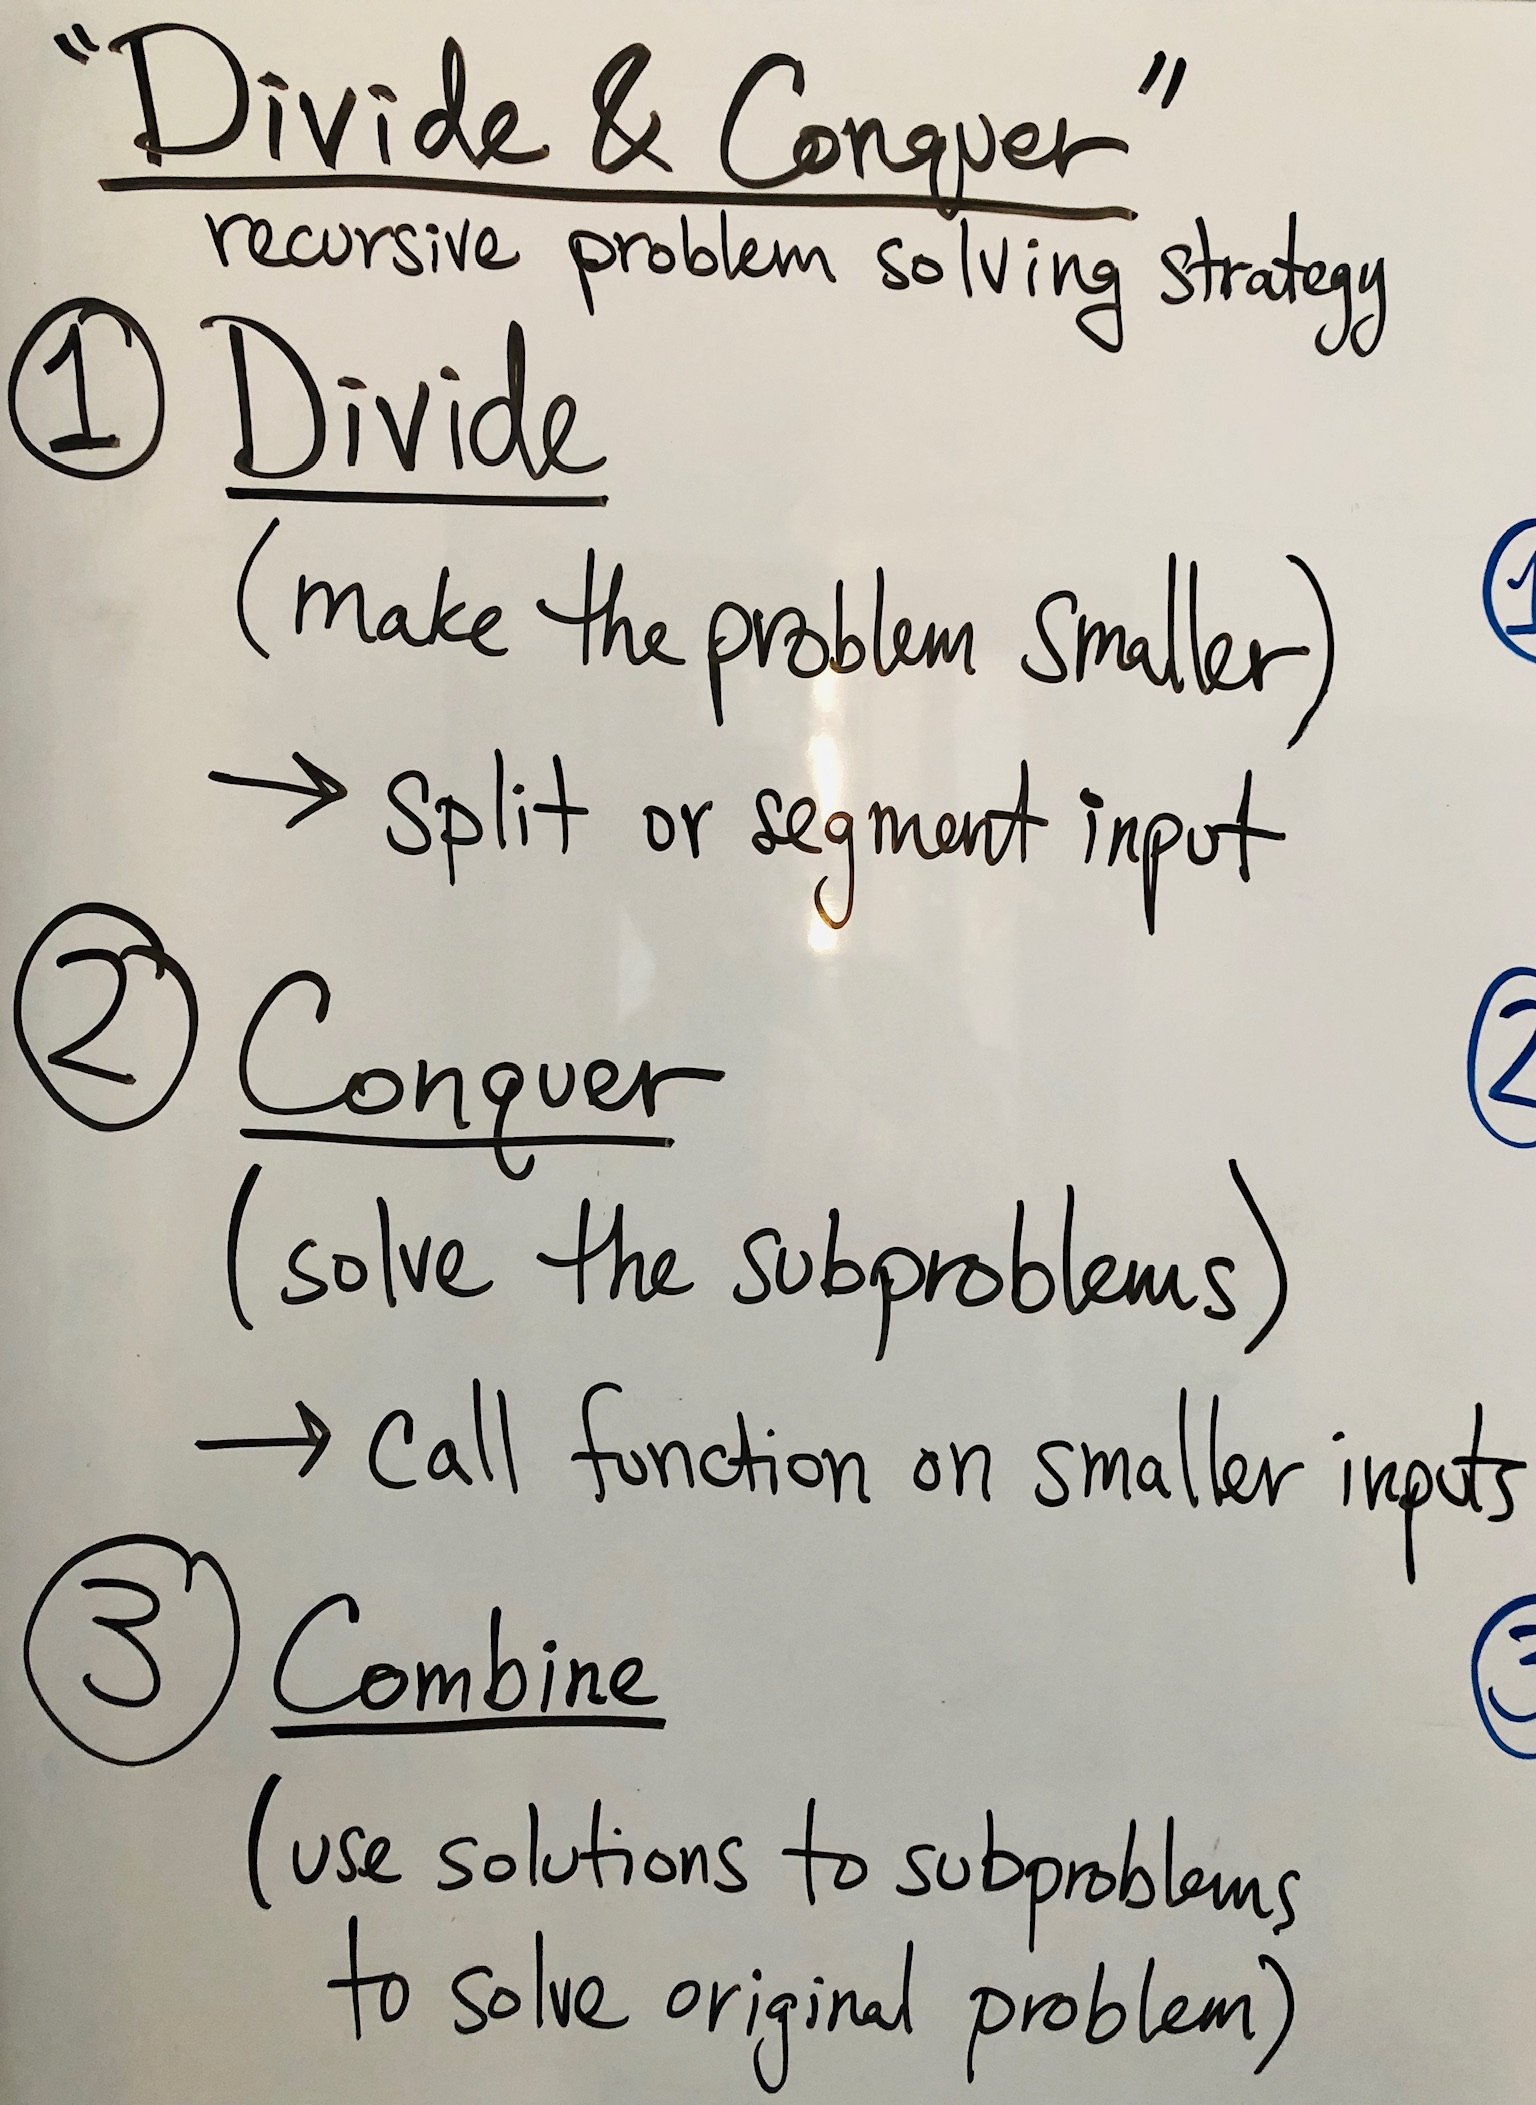 "Divide & Conquer"
recursive problem solving strategy
1 Divide
(make the problem smaller)
→ Split or segment input
2 Conquer
(solve the subproblems)
→ Call function on smaller inputs
3 Combine
(use solutions to subproblems
to solve original problem)
1
2
3